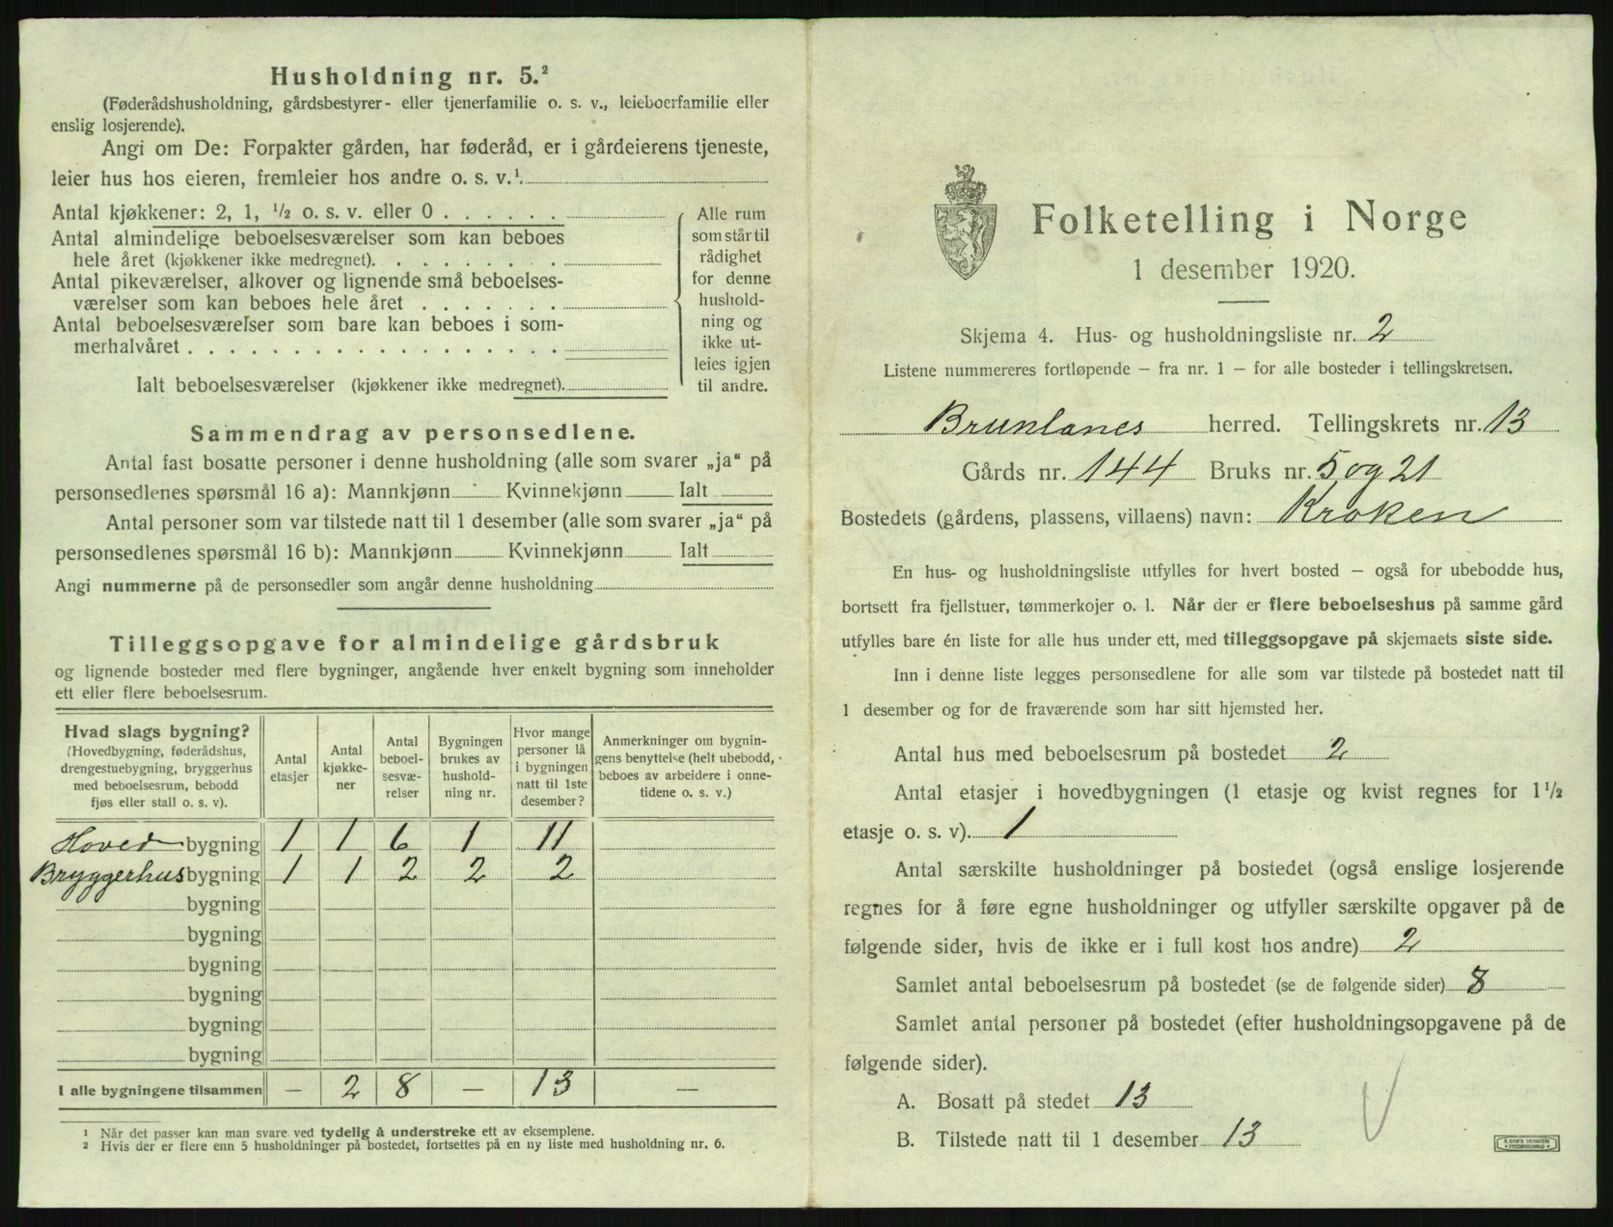 Husholdning nr. 5.²
(Føderådshusholdning, gårdsbestyrer- eller tjenerfamilie o. s. v., leieboerfamilie eller
enslig losjerende).
Angi om De: Forpakter gården, har føderåd, er i gårdeierens tjeneste,
leier hus hos eieren, fremleier hos andre o. s. v.¹.
Antal kjøkkener: 2, 1, ½ o. s. v. eller 0 . . . . . .
Antal almindelige beboelsesværelser som kan beboes
hele året (kjøkkener ikke medregnet). . . . . . . .
Antal pikeværelser, alkover og lignende små beboelses-
værelser som kan beboes hele året . . . . . . .
Antal beboelsesværelser som bare kan beboes i som-
merhalvåret . . . . . . . . . . . . . . . . . .
Ialt beboelsesværelser (kjøkkener ikke medregnet).
Alle rum
som står til
rådighet
for denne
hushold-
ning og
ikke ut-
leies igjen
til andre.
Sammendrag av personsedlene.
Antal fast bosatte personer i denne husholdning (alle som svarer „ja“ på
personsedlenes spørsmål 16 a): Mannkjønn Kvinnekjønn Ialt
Antal personer som var tilstede natt til 1 desember (alle som svarer „ja“ på
personsedlenes spørsmål 16 b): Mannkjønn Kvinnekjønn Ialt
Angi nummerne på de personsedler som angår denne husholdning
Tilleggsopgave for almindelige gårdsbruk
og lignende bosteder med flere bygninger, angående hver enkelt bygning som inneholder
ett eller flere beboelsesrum.
Hvad slags bygning?
(Hovedbygning, føderådshus,
drengestuebygning, bryggerhus
med beboelsesrum, bebodd
fjøs eller stall o. s. v).
Antal
etasjer
Antal
kjøkke-
ner
Antal
beboel-
sesvæ-
relser
Bygningen
brukes av
hushold-
ning nr.
Hvor mange
personer lå
i bygningen
natt til 1ste
desember?
Anmerkninger om bygnin-
gens benyttelse (helt ubebodd,
beboes av arbeidere i onne-
tidene o. s. v.)
Hoved bygning 1 1 6 1 11
Bryggerhus bygning 1 1 2 2 2
bygning
bygning
bygning
bygning
bygning
bygning
I alle bygningene tilsammen – 2 8 – 13 –
¹ Når det passer kan man svare ved tydelig å understreke ett av eksemplene.
² Hvis der er flere enn 5 husholdninger på bostedet, fortsettes på en ny liste med husholdning nr. 6.
Folketelling i Norge
1 desember 1920.
Skjema 4. Hus- og husholdningsliste nr. 2
Listene nummereres fortløpende – fra nr. 1 – for alle bosteder i tellingskretsen.
Brunlanes herred. Tellingskrets nr. 13
Gårds nr. 144 Bruks nr. 5 og 21
Bostedets (gårdens, plassens, villaens) navn: Kroken
En hus- og husholdningsliste utfylles for hvert bosted – også for ubebodde hus,
bortsett fra fjellstuer, tømmerkojer o. l. Når der er flere beboelseshus på samme gård
utfylles bare én liste for alle hus under ett, med tilleggsopgave på skjemaets siste side.
Inn i denne liste legges personsedlene for alle som var tilstede på bostedet natt til
1 desember og for de fraværende som har sitt hjemsted her.
Antal hus med beboelsesrum på bostedet 2
Antal etasjer i hovedbygningen (1 etasje og kvist regnes for 1½
etasje o. s. v). 1
Antal særskilte husholdninger på bostedet (også enslige losjerende
regnes for å føre egne husholdninger og utfyller særskilte opgaver på de
følgende sider, hvis de ikke er i full kost hos andre) 2
Samlet antal beboelsesrum på bostedet (se de følgende sider) 8
Samlet antal personer på bostedet (efter husholdningsopgavene på de
følgende sider).
A. Bosatt på stedet 13
B. Tilstede natt til 1 desember 13